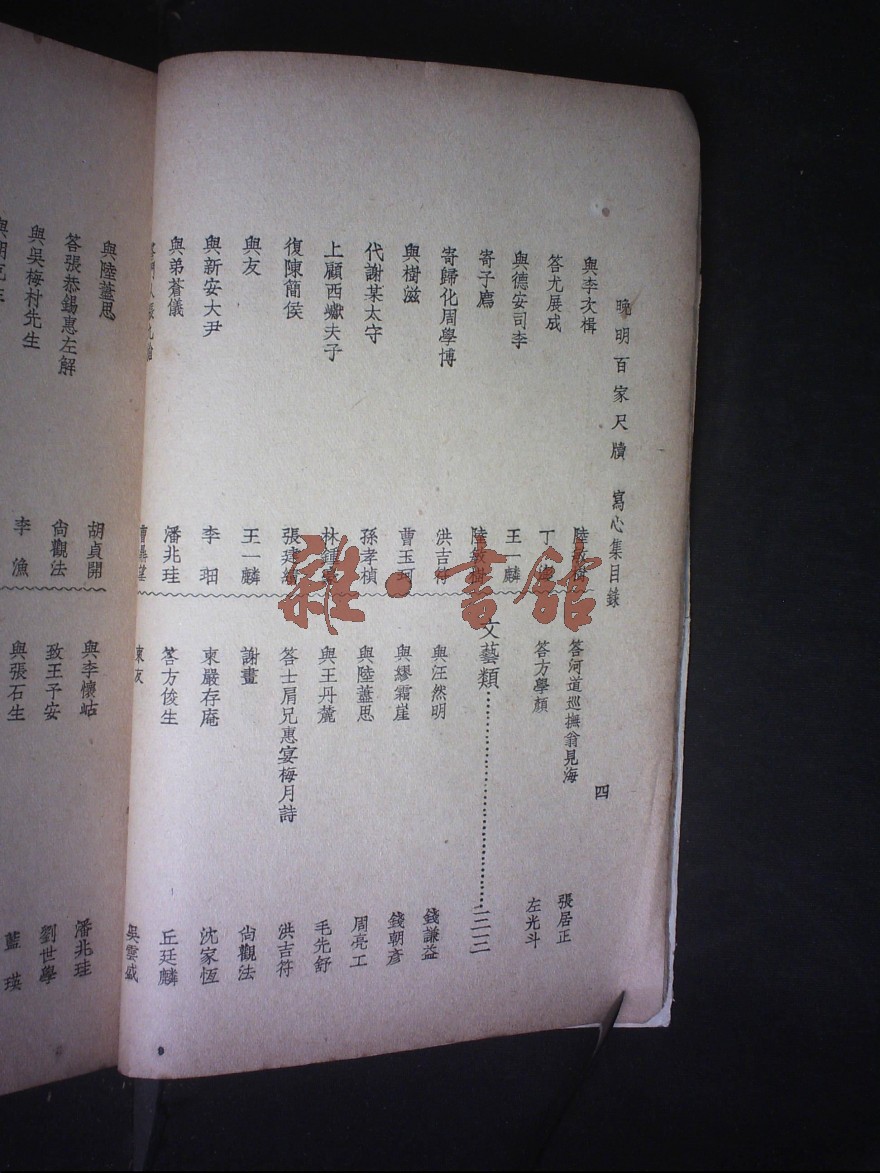 晚明百家尺牘 寫心集目錄
四
與李次楫
答尤展成
與德安司李 王一麟
寄子廌 陸敏樹
寄歸化周學博 洪吉符
與樹滋 曹玉珂
代謝某太守 孫孝楨
上顧西巘夫子
復陳簡侯
與友 王一麟
與新安大尹 李
與弟蒼儀 潘兆珪
答河道巡撫翁見海 張居正
答方學顏 左光斗
文藝類 二一三
與汪然明 錢謙益
與繆霜崖 錢朝彥
與陸藎思 周亮工
與王丹麓 毛先舒
答士肩兄惠宴梅月詩 洪吉符
謝畫 尙觀法
柬嚴存庵 沈家恆
答方俊生 丘廷麟
吳雲
與陸藎思 胡貞開
答張恭錫惠左解 尙觀法
與吳梅村先生 李漁
與李懷岵 潘兆珪
致王予安 劉世學
與張石生 藍瑛
雜·書館